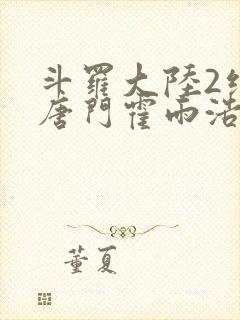 斗羅大陸2
唐門霍雨浩
董夏